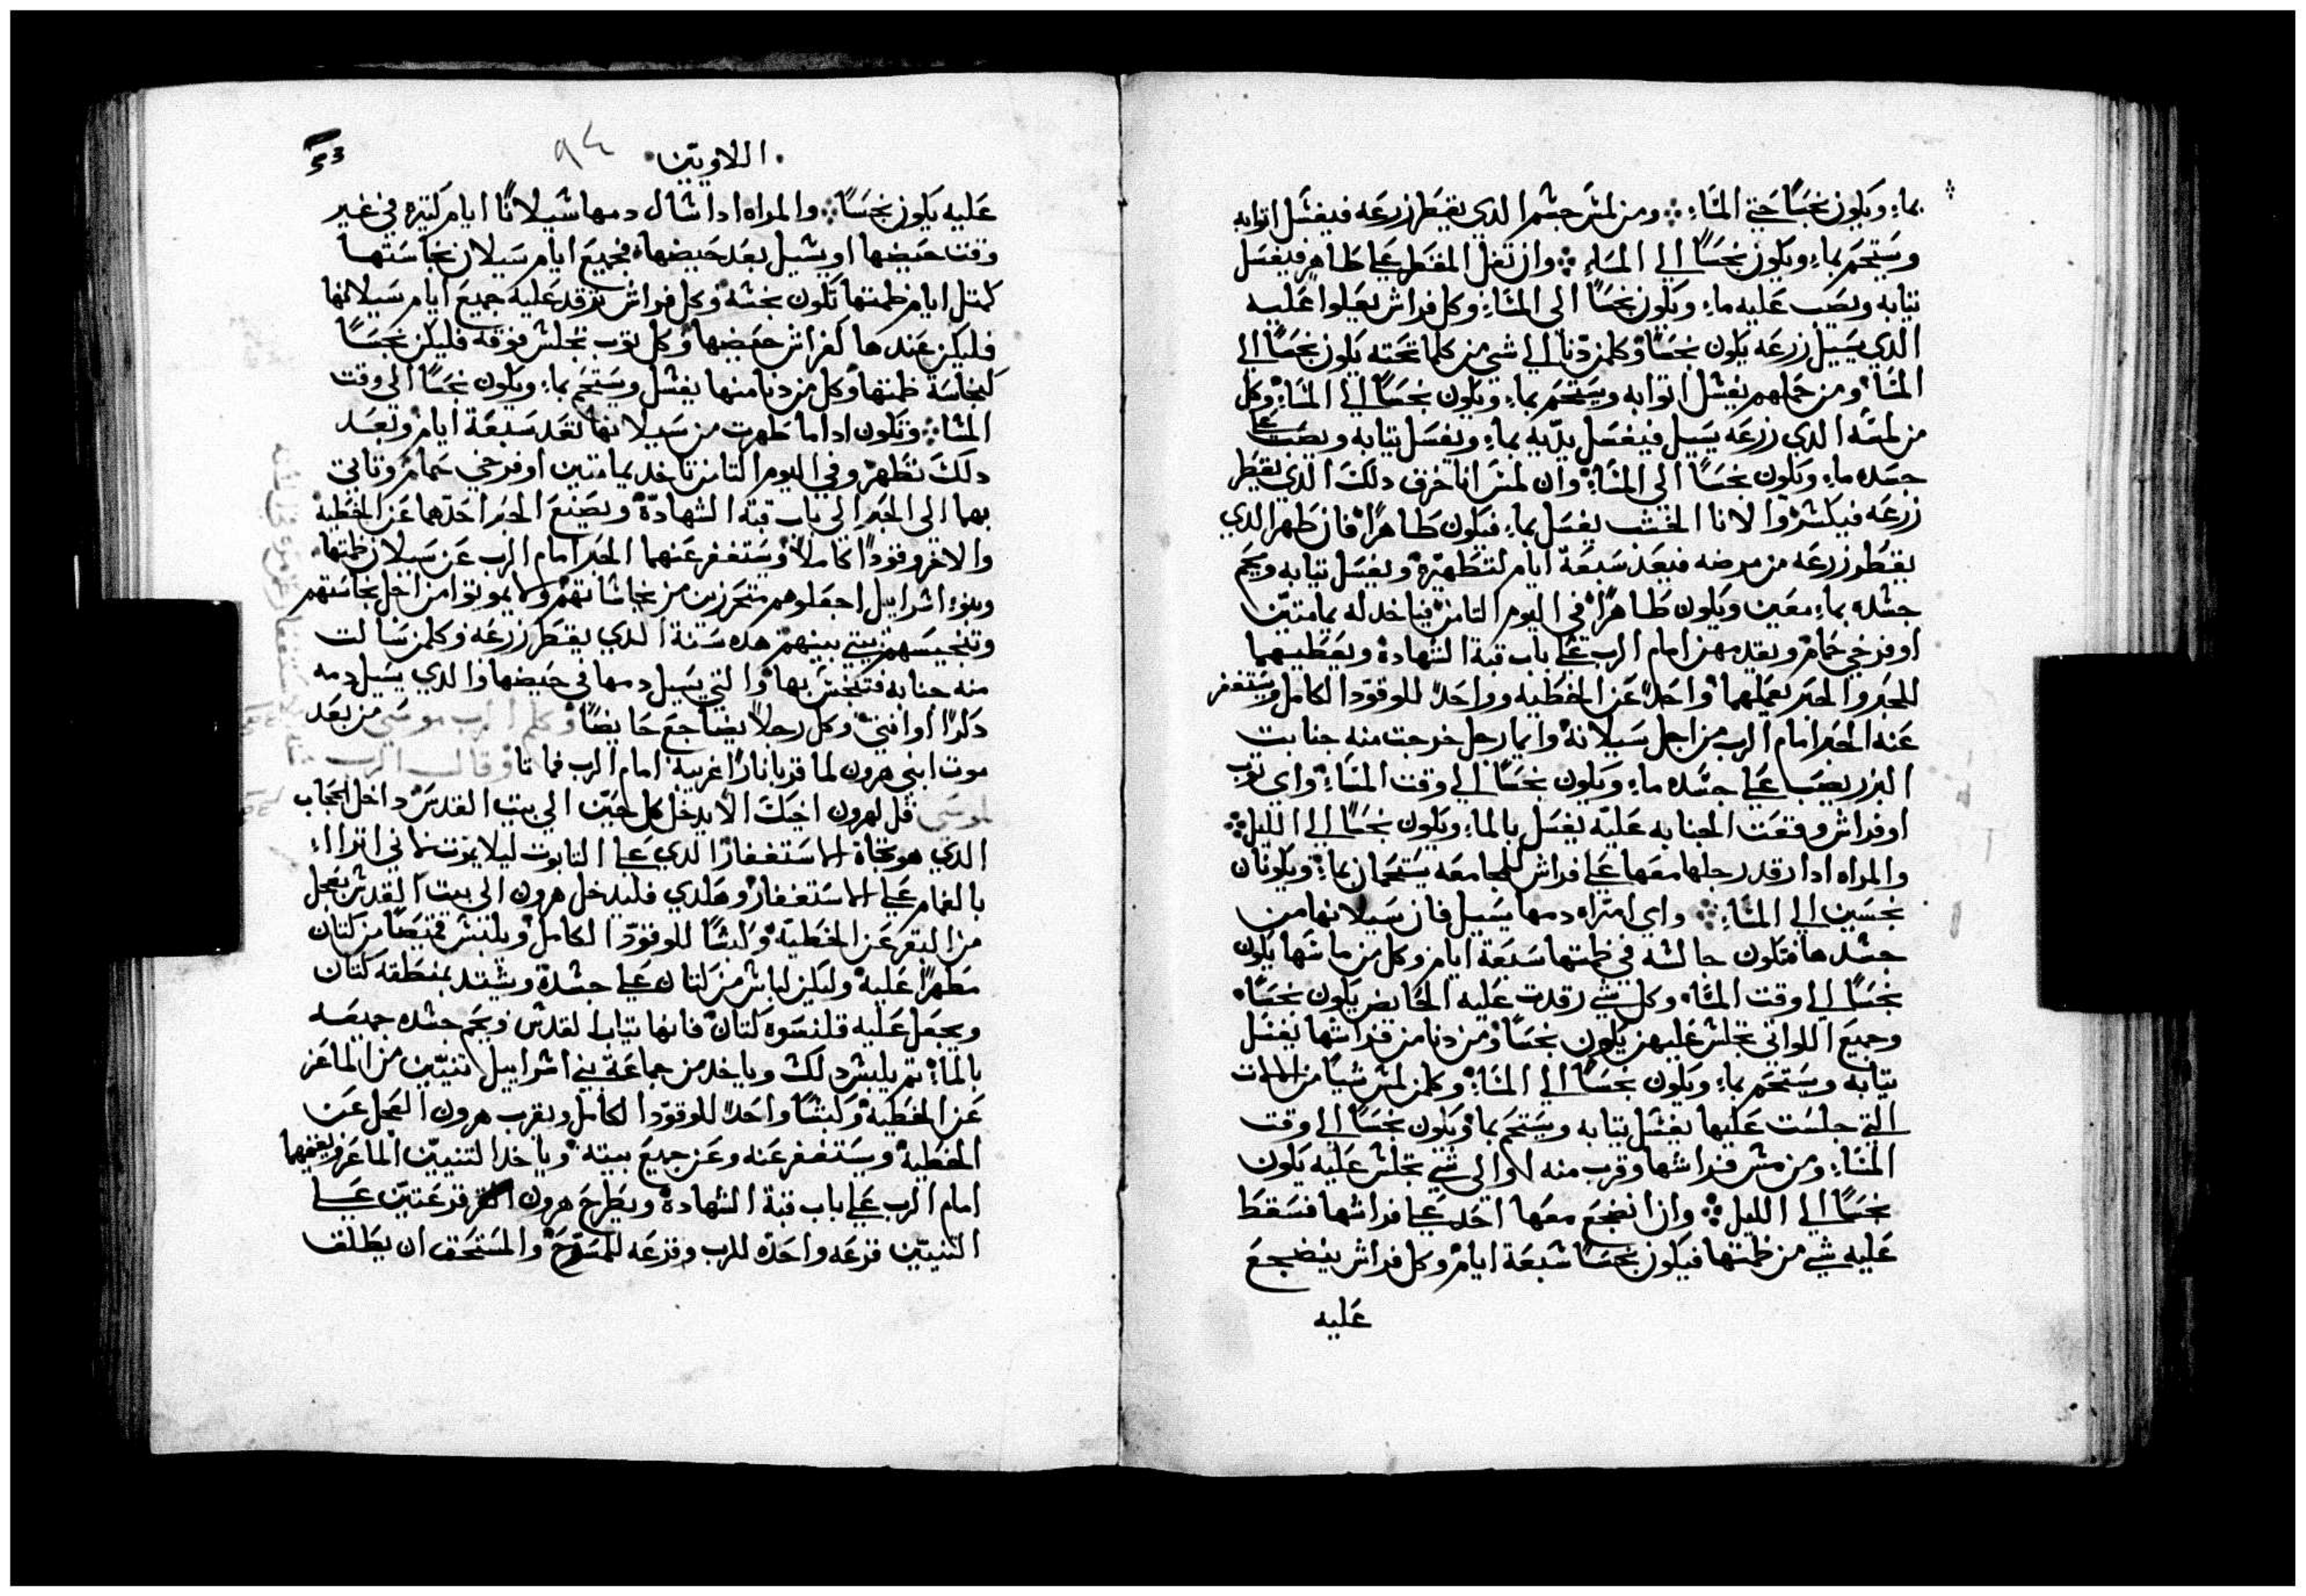 بماء ويكون نجسًا حتي المساء ومن لمس جسم الدي يقطر زرعه فيغسل اتوابه
ويستحم بماء ويكون نجسًا الي المساء وان تفل المقطر علي طاهر فيغسل
تيابه ويصب عليه ماء ويكون نجسًا الى المساء وكل فراش يعلوا عليه
الدي يسيل زرعه يكون نجسًا وكلمن دنا الي شي من كلما تحته يكون نجسًا الي
المساء ومن حملهم يغسل اتوابه ويستحم بماء ويكون نجسًا الي المساء وكل
من لمسه الدي زرعه يسيل فيغسل يديه بماء ويغسل تيابه ويصب علي
جسده ماء ويكون نجسًا الي المساء وان لمس انا خزف دلك الدي يقطر
زرعه فيكسر والانا الخشب يغسل بماء فيكون طاهرًا فان طهر الدي
يقطر زرعه من مرضه فيعد سبعة ايام لتطهيره ويغسل تيابه ويحم
جسده بماء معين ويكون طاهرًا في اليوم التامن فياخد له يمامتين
او فرخي حمام ويقدمهن امام الرب علي باب قبة الشهادة ويعطيهما
للحبر والحبر يعملهما واحدًا عن الخطيه وواحدًا للوقود الكامل ويستغفر
عنه الحبر امام الرب من اجل سيلانه وايما رجل خرجت منه جنابت
البزر يصب علي جسده ماء ويكون نجسًا الي وقت المساء واي توب
او فراش وقعت الجنابه عليه يغسل بالماء ويكون نجسًا الي الليل
والمراه ادا رقد رجلها معها علي فراش للمجامعه يستحمان بماء ويكونان
نجسين الي المساء واي امراه دمها يسيل فان سيلانها من
جسدها فتكون جالسه في طمتها سبعة ايام وكل من ماسها يكون
نجسًا الي وقت المساء وكل شي رقدت عليه الحايض يكون نجسًا
وجميع اللواتي تجلس عليهن يكون نجسًا ومن دنا من فراشها يغسل
تيابه ويستحم بماء ويكون نجسًا الي المساء وكلمن لمس شيا من الالات
التي جلست عليها يغسل تيابه ويستحم بما ويكون نجسًا الي وقت
المساء ومن مس فراشها وقرب منه او الى شي تجلس عليه يكون
نجسًا الي الليل وان انضجع معها احد علي فراشها فسقط
عليه شي من طمتها فيكون نجسًا سبعة ايام وكل فراش ينضجع
عليه
اللاويين ٩٤
عليه يكون نجسًا والمراه ادا شال دمها سيلانًا ايام كتيره في غير
وقت حيضها او سيل بعد حيضها فجميع ايام سيلان نجاستها
كمتل ايام طمتها تكون نجسه وكل فراش ترقد عليه جميع ايام سيلانها
فليكن عندها كفراش حيضها وكل توب تجلس فوقه فليكن نجسًا
كنجاسة طمتها وكل من دنا منها يغسل ويستحم بماء ويكون نجسًا الي وقت
المشا وتكون ادا ما طهرت من سيلانها تعد سبعة ايام وبعد
دلك تطهر وفي اليوم التامن تاخد يمامتين او فرخي حمام وتاتي
بهما الي الحبر الي باب قبة الشهادة ويصنع الحبر احدهما عن الخطية
والاخر وقودًا كاملًا ويستغفر عنهما الحبر امام الرب عن سيلان طمتها
وبنوا اسراييل اجعلوهم متحرزين من نجاساتهم ولا يموتوا من اجل نجاستهم
وتنجيسهم بيتي بينهم هده سنة الدي يقطر زرعه وكلمن سالت
منه جنابه فتنجس بها والتي يسيل دمها في حيضها والدي يسيل دمه
دكرًا او انتي وكل رجلًا يضاجع حايضًا وكلم الرب موسي من بعد
موت ابني هرون لما قربا نارًا غريبة امام الرب فماتا وقال الرب
لموسي قل لهرون اخيك الا يدخل كل حين الي بيت القدس داخل الحجاب
الدي هو تجاة الاستغفار الدي علي التابوت ليلا يموت لاني اتراا
بالغمام علي الاستغفار وهكدي فليدخل هرون الي بيت القدس بعجل
من البقر عن الخطية وكبشًا للوقود الكامل ويلبس قميصًا من كتان
مطهرًا عليه وليكن لباس من كتان علي جسده ويشتد بمنطقة كتان
ويجعل عليه قلنسوه كتان فانها تياب القدس ويحم جسده جميعه
بالماء تم يلبس دلك وياخد من جماعة بني اسراييل تنيين من الماعز
عن الخطية وكبشًا واحدًا للوقود الكامل ويقرب هرون العجل عن
الخطية ويستغفر عنه وعن جميع بيته وياخد التنيين الماعز ويقيمهما
امام الرب علي باب قبة الشهادة ويطرح هرون قرعتين علي
التنيين قرعه واحده للرب وقرعه للمسرح والمستحق ان يطلق